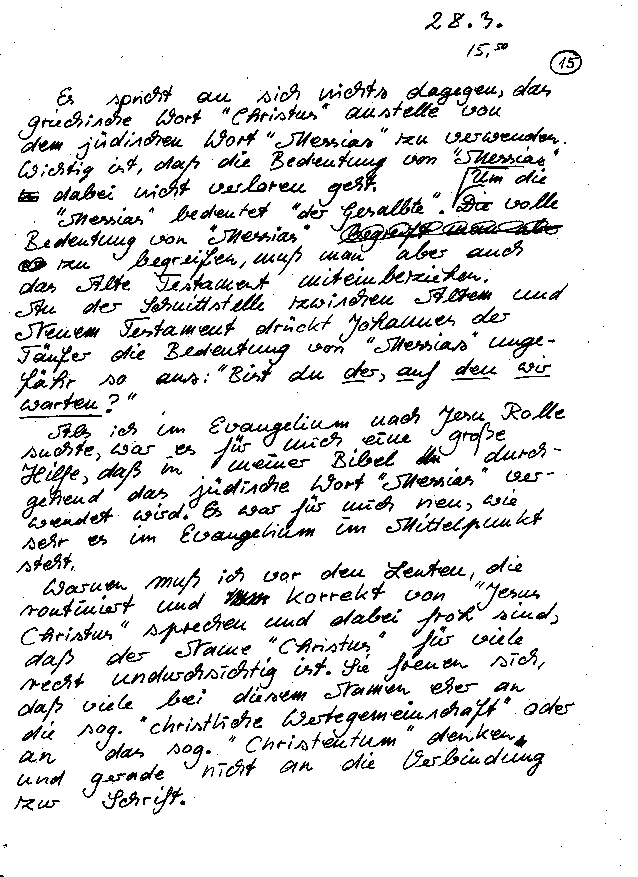 28.3.
15,50
15
Es spricht an sich nichts dagegen, das
griechische Wort "Christus" anstelle von
dem jüdischen Wort "Messias" zu verwenden.
Wichtig ist, daß die Bedeutung von "Messias"
dabei nicht verloren geht.
"Messias" bedeutet "der Gesalbte". Um die volle
Bedeutung von "Messias"
zu begreifen, muß man aber auch
das Alte Testament miteinbeziehen.
An der Schnittstelle zwischen Altem und
Neuem Testament drückt Johannes der
Täufer die Bedeutung von "Messias" unge-
fähr so aus: "Bist du der, auf den wir
warten?"
Als ich im Evangelium nach Jesu Rolle
suchte, war es für mich eine große
Hilfe, daß in meiner Bibel durch-
gehend das jüdische Wort "Messias" ver-
wendet wird. Es war für mich neu, wie
sehr es im Evangelium im Mittelpunkt
steht.
Warnen muß ich vor den Leuten, die
routiniert und korrekt von "Jesus
Christus" sprechen und dabei froh sind,
daß der Name "Christus" für viele
recht undurchsichtig ist. Sie freuen sich,
daß viele bei diesem Namen eher an
die sog. "christliche Wertegemeinschaft" oder
an das sog. "Christentum" denken
und gerade nicht an die Verbindung
zur Schrift.